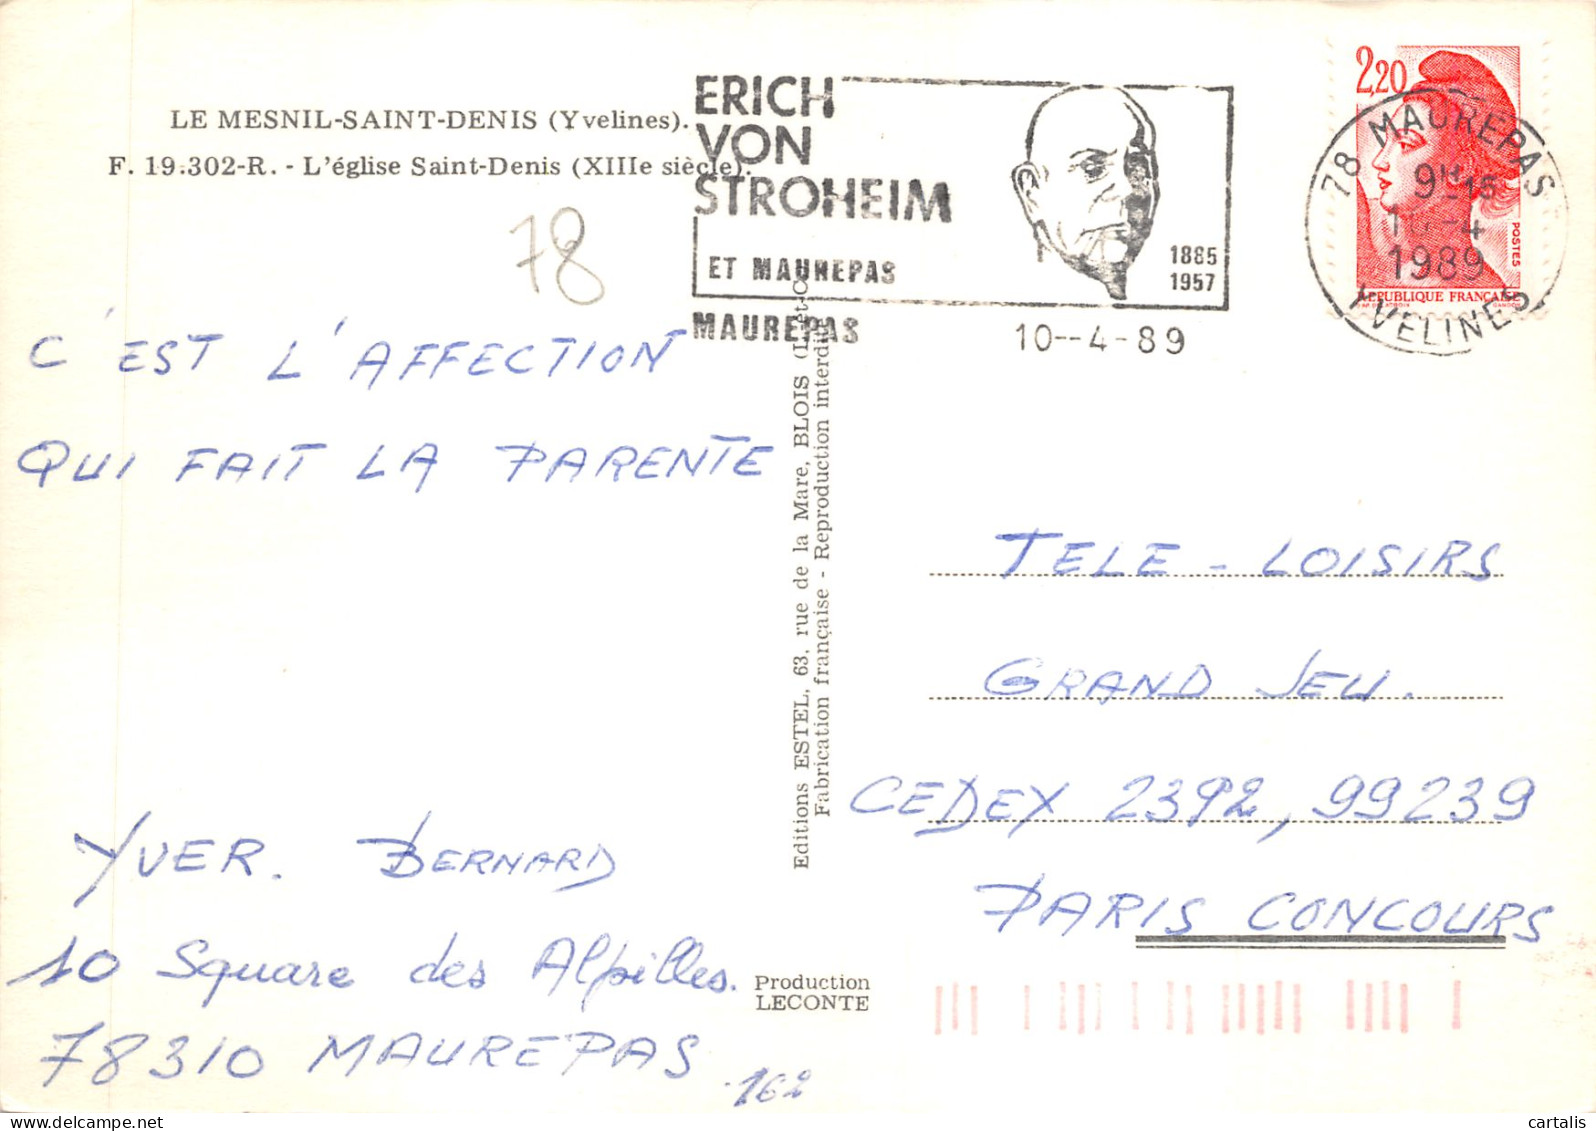 LE MESNIL-SAINT-DENIS (Yvelines).
F. 19.302-R. - L'église Saint-Denis (XIIIe siècle).
78
ERICH
VON
STROHEIM
ET MAUREPAS
1885
1957
MAUREPAS
10--4-89
2,20
POSTES
REPUBLIQUE FRANÇAISE
78 MAUREPAS
9H15
4
1989
YVELINES
C'EST L'AFFECTION
QUI FAIT LA PARENTE
YVER. BERNARD
10 Square des Alpilles.
78310 MAUREPAS
162
Editions ESTEL, 63, rue de la Mare, BLOIS (L.-et-C.
Fabrication française - Reproduction interdite
Production
LECONTE
TELE - LOISIRS
GRAND JEU.
CEDEX 2392, 99239
PARIS CONCOURS
cartalis